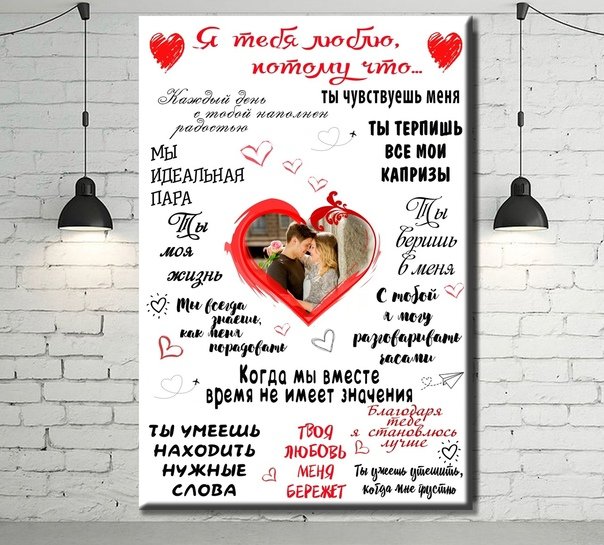 Я тебя люблю,
потому что...
Каждый день
с тобой наполнен
радостью
ты чувствуешь меня
ТЫ ТЕРПИШЬ
ВСЕ МОИ
КАПРИЗЫ
МЫ
ИДЕАЛЬНАЯ
ПАРА
Ты
моя
жизнь
Ты
веришь
в меня
Ты всегда
знаешь,
как меня
порадовать
С тобой
я могу
разговаривать
часами
Когда мы вместе
время не имеет значения
ТЫ УМЕЕШЬ
НАХОДИТЬ
НУЖНЫЕ
СЛОВА
ТВОЯ
ЛЮБОВЬ
МЕНЯ
БЕРЕЖЕТ
Благодаря
тебе
я становлюсь
лучше
Ты умеешь утешить,
когда мне грустно